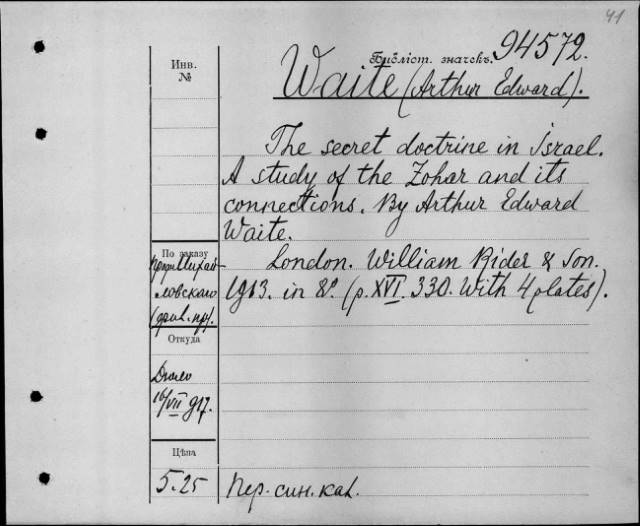 41
Библіот. значекъ. 94572.
Инв.
№
Waite (Arthur Edward).
The secret doctrine in Israel.
A study of the Zohar and its
connections. By Arthur Edward
Waite.
По заказу
London. William Rider & Son.
1913. in 8º (p. XVI. 330. With 4 plates).
Михай-
ловскаго
Откуда
16/VII 917.
Цѣна
5.25
Пер. син. к